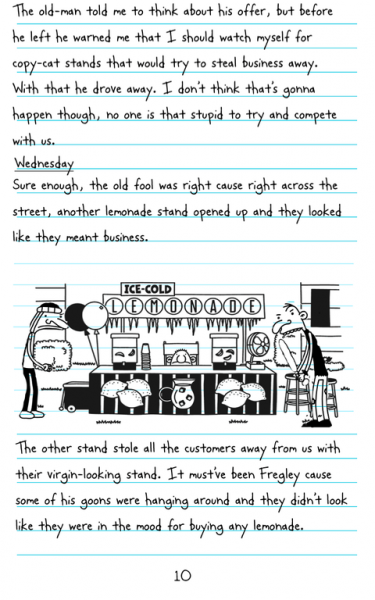 The old-man told me to think about his offer, but before
he left he warned me that I should watch myself for
copy-cat stands that would try to steal business away.
With that he drove away. I don't think that's gonna
happen though, no one is that stupid to try and compete
with us.
Wednesday
Sure enough, the old fool was right cause right across the
street, another lemonade stand opened up and they looked
like they meant business.
ICE-COLD
LEMONADE
The other stand stole all the customers away from us with
their virgin-looking stand. It must've been Fregley cause
some of his goons were hanging around and they didn't look
like they were in the mood for buying any lemonade.
10